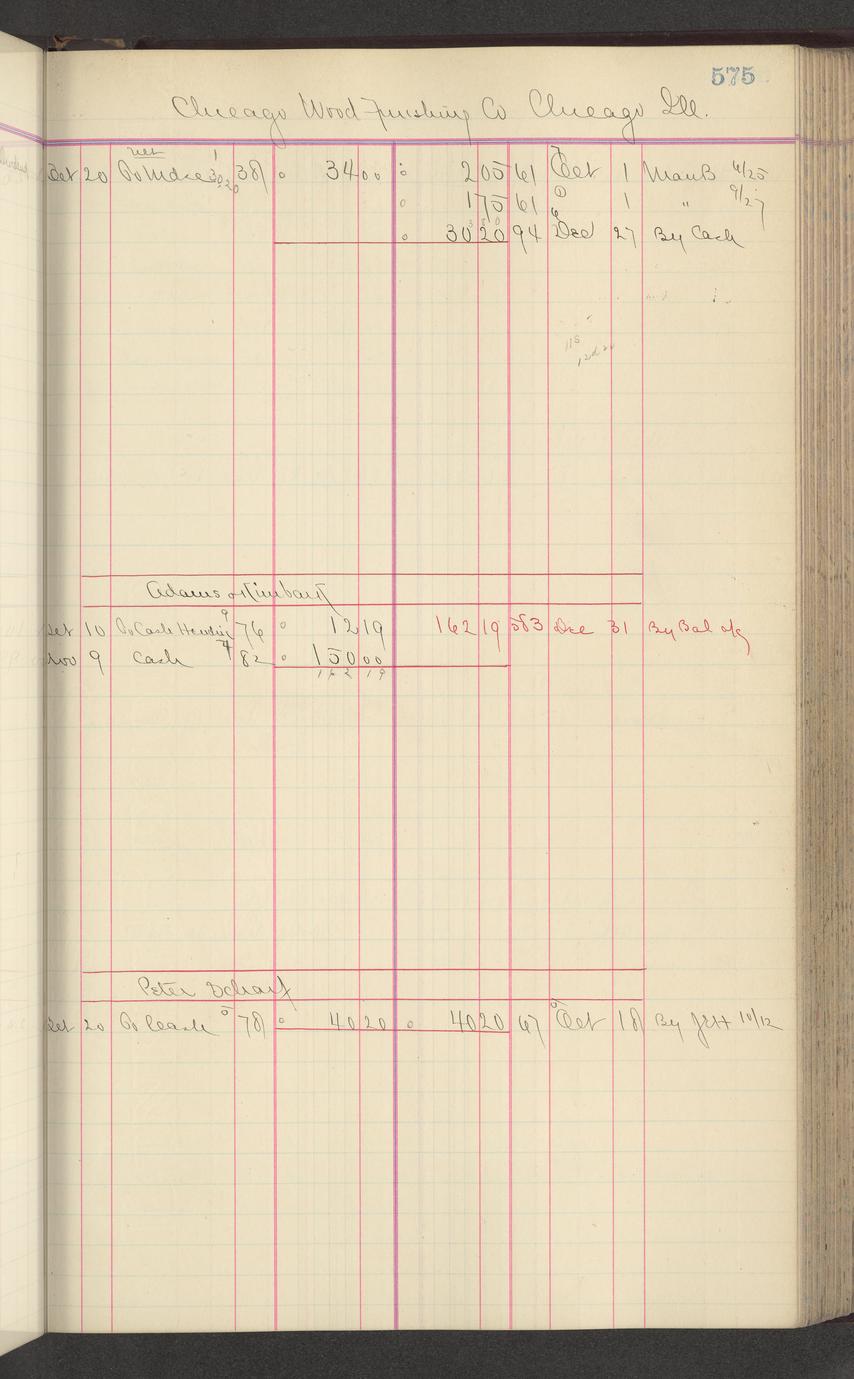 575
Chicago Wood Finishing Co Chicago Ill.
Oct 20 To Mdse 30.20 38 34 00 2 05 61 Oct 1 ManB 6/25
1 75 61 1 " 9/27
30 20 94 Dec 27 By Cash
Adams & Kimbark
Oct 10 To Cash 76 12 19 162 19 583 Dec 31 By Bal
Nov 9 Cash 82 150 00
162 19
Peter Scharf
Oct 20 To Cash 78 40 20 40 20 67 Oct 18 By 10/12